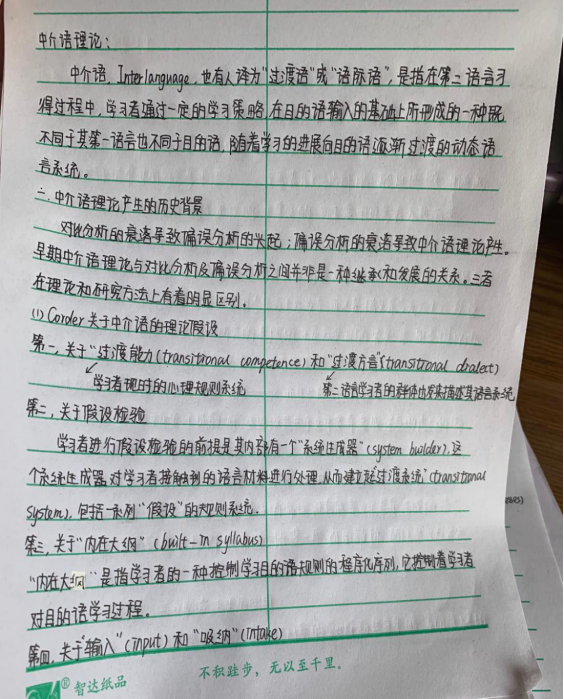 中介语理论：
中介语，Interlanguage，也有人译为“过渡语”或“语际语”，是指在第二语言习
得过程中，学习者通过一定的学习策略，在目的语输入的基础上所形成的一种既
不同于其第一语言也不同于目的语，随着学习的进展向目的语逐渐过渡的动态语
言系统。
二.中介语理论产生的历史背景
对比分析的衰落导致偏误分析的兴起；偏误分析的衰落导致中介语理论产生。
早期中介语理论与对比分析及偏误分析之间并非是一种继承和发展的关系。三者
在理论和研究方法上有着明显区别。
(1) Corder关于中介语的理论假设
第一，关于“过渡能力(transitional competence)和“过渡方言”(transitional dialect)
学习者现时的心理规则系统 第二语言学习者的群体 来描述其语言系统
第二，关于假设检验
学习者进行假设检验的前提是其内部有一个“系统生成器”(system builder)，这
个系统生成器对学习者接触到的语言材料进行处理，从而建立起“过渡系统”(transitional
system)，包括一系列“假设”的规则系统.
第三，关于“内在大纲”(built-in syllabus)
“内在大纲”是指学习者的一种控制学习目的语规则的程序化序列，它控制着学习者
对目的语学习过程。
第四，关于“输入”(input)和“吸纳”(intake)
® 智达纸品
不积跬步，无以至千里。